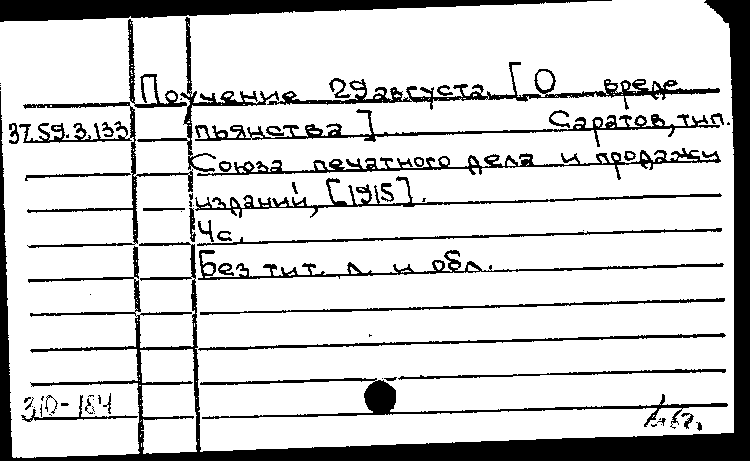 Поучение 29 августа. [О вреде
37.59.3.133 пьянства]. Саратов, тип.
Союза печатного дела и продажи
изданий, [1915].
4 с.
Без тит. л. и обл.
310-184